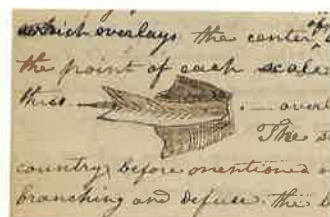 which overlays the center
the point of each scale
thus — . — over
The s
country before mentioned
branching and defuse. the